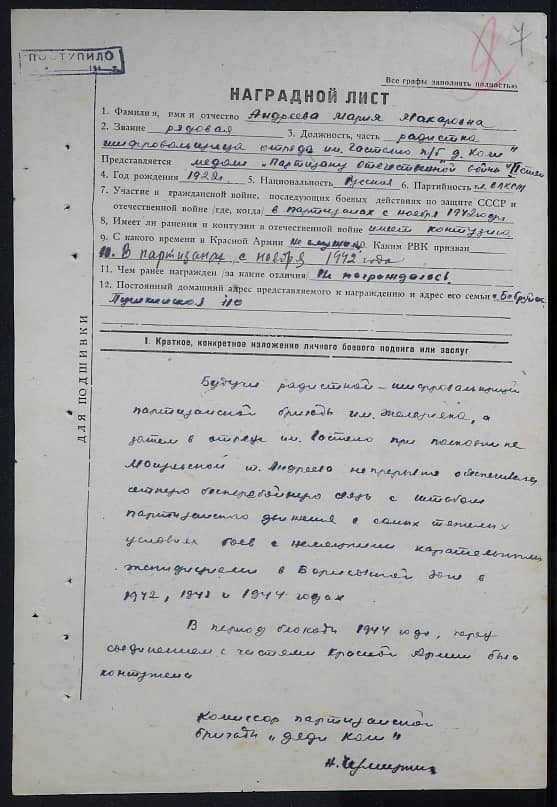 ПОСТУПИЛО
7
Все графы заполнять полностью
НАГРАДНОЙ ЛИСТ
1. Фамилия, имя и отчество Андреева Мария Макаровна
2. Звание рядовая 3. Должность, часть радистка
шифровальщица отряда им. Гастело п/б "д. Коли"
Представляется медали "Партизану отечественной войны" II степ
4. Год рождения 1922г. 5. Национальность Русская 6. Партийность чл. ВЛКСМ
7. Участие в гражданской войне, последующих боевых действиях по защите СССР и
отечественной войне (где, когда) в партизанах с ноября 1942 года
8. Имеет ли ранения и контузии в отечественной войне имеет контузию
9. С какого времени в Красной Армии не служила 10. Каким РВК призван
10. В партизанах с ноября 1942 года
11. Чем ранее награжден (за какие отличия) не награждалась
12. Постоянный домашний адрес представляемого к награждению и адрес его семьи г. Бобруйск
Пушкинская
ДЛЯ ПОДШИВКИ
I. Краткое, конкретное изложение личного боевого подвига или заслуг
Будучи радисткой-шифровальщицей
партизанской бригады им. а
затем в отряде им. Гастело при
т. Андреева непрерывно обеспечивала
бесперебойную связь с штабом
партизанского движения в самых тяжелых
условиях боев с немецкими карательными
экспедициями в Борисовской зоне в
1942, 1943 и 1944 годах
В период блокады 1944 года, перед
соединением с частями Красной Армии была
контужена
Комиссар партизанской
бригады "дяди Коли"